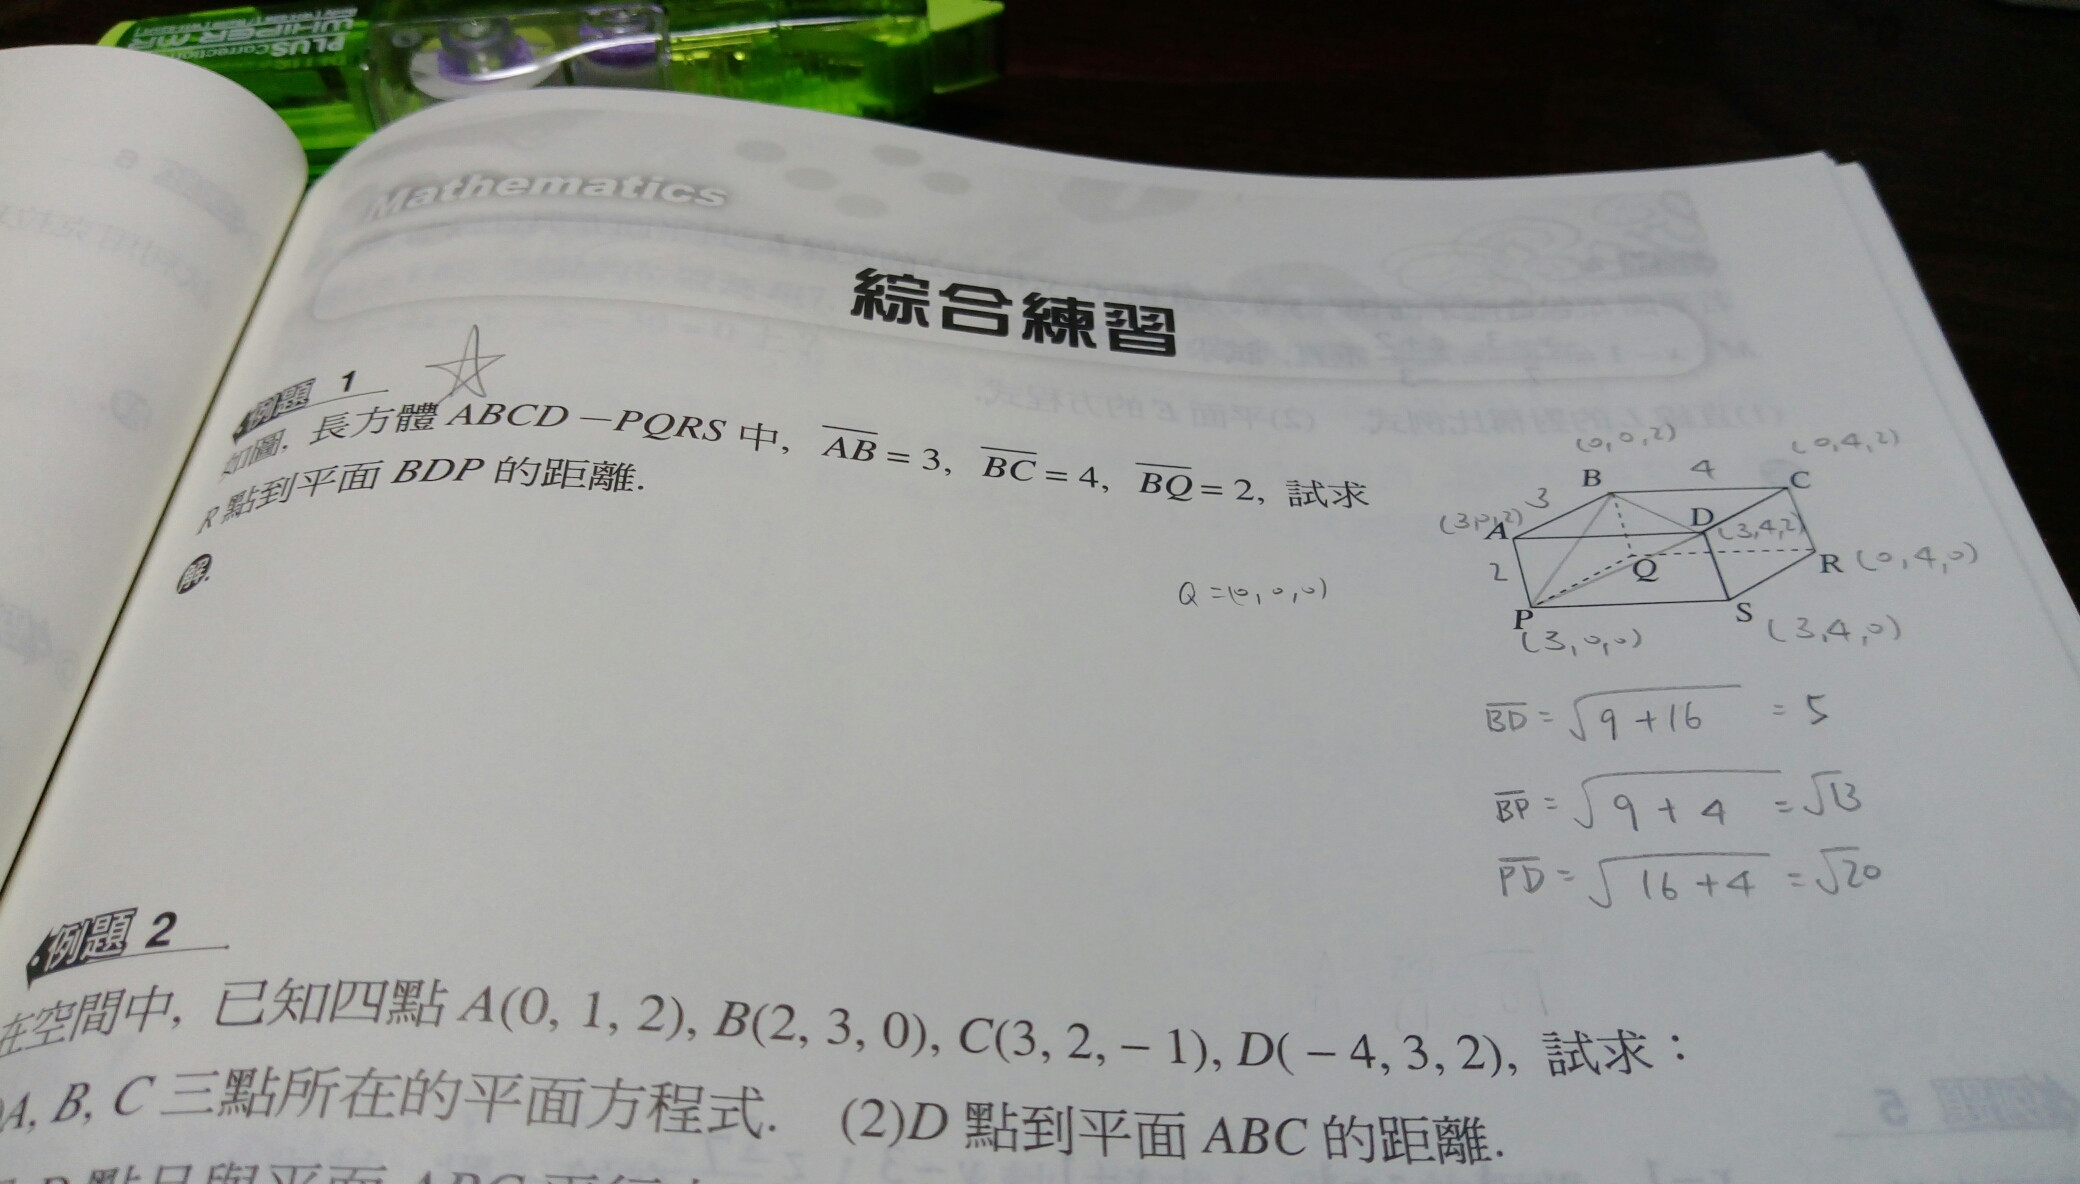 PLUS Correction
WHIPER MR
Mathematics
綜合練習
例題 1
如圖, 長方體 ABCD－PQRS 中, AB = 3, BC = 4, BQ = 2, 試求
R 點到平面 BDP 的距離.
解.
Q = (0, 0, 0)
(0, 0, 2)
(0, 4, 2)
B 4 C
3
(3, 0, 2) A D (3, 4, 2)
2 Q R (0, 4, 0)
P S
(3, 0, 0) (3, 4, 0)
BD = √9 + 16 = 5
BP = √9 + 4 = √13
PD = √16 + 4 = √20
例題 2
在空間中, 已知四點 A(0, 1, 2), B(2, 3, 0), C(3, 2, － 1), D( － 4, 3, 2), 試求：
)A, B, C 三點所在的平面方程式. (2)D 點到平面 ABC 的距離.